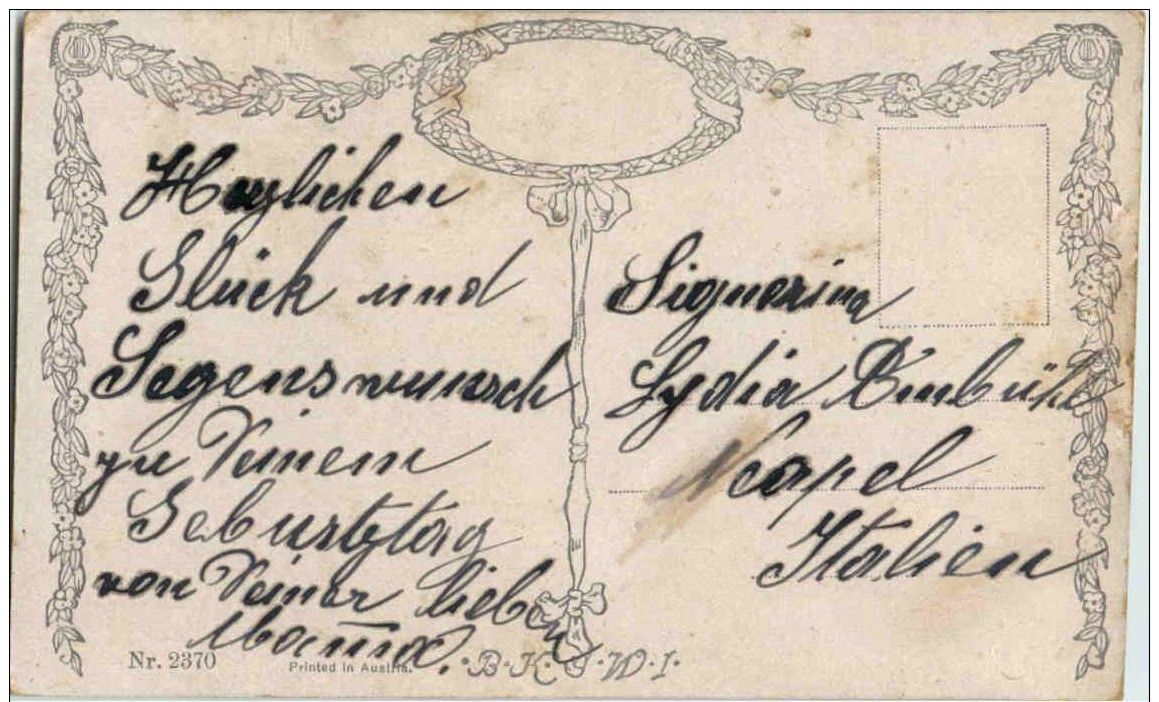 Herzlichen
Glück und
Segenswunsch
zu Deinem
Geburtztag
von Deiner lieben
Mama.
Signorina
Lydia
Neapel
Italien
Nr. 2370
Printed in Austria.
B.K.W.I.